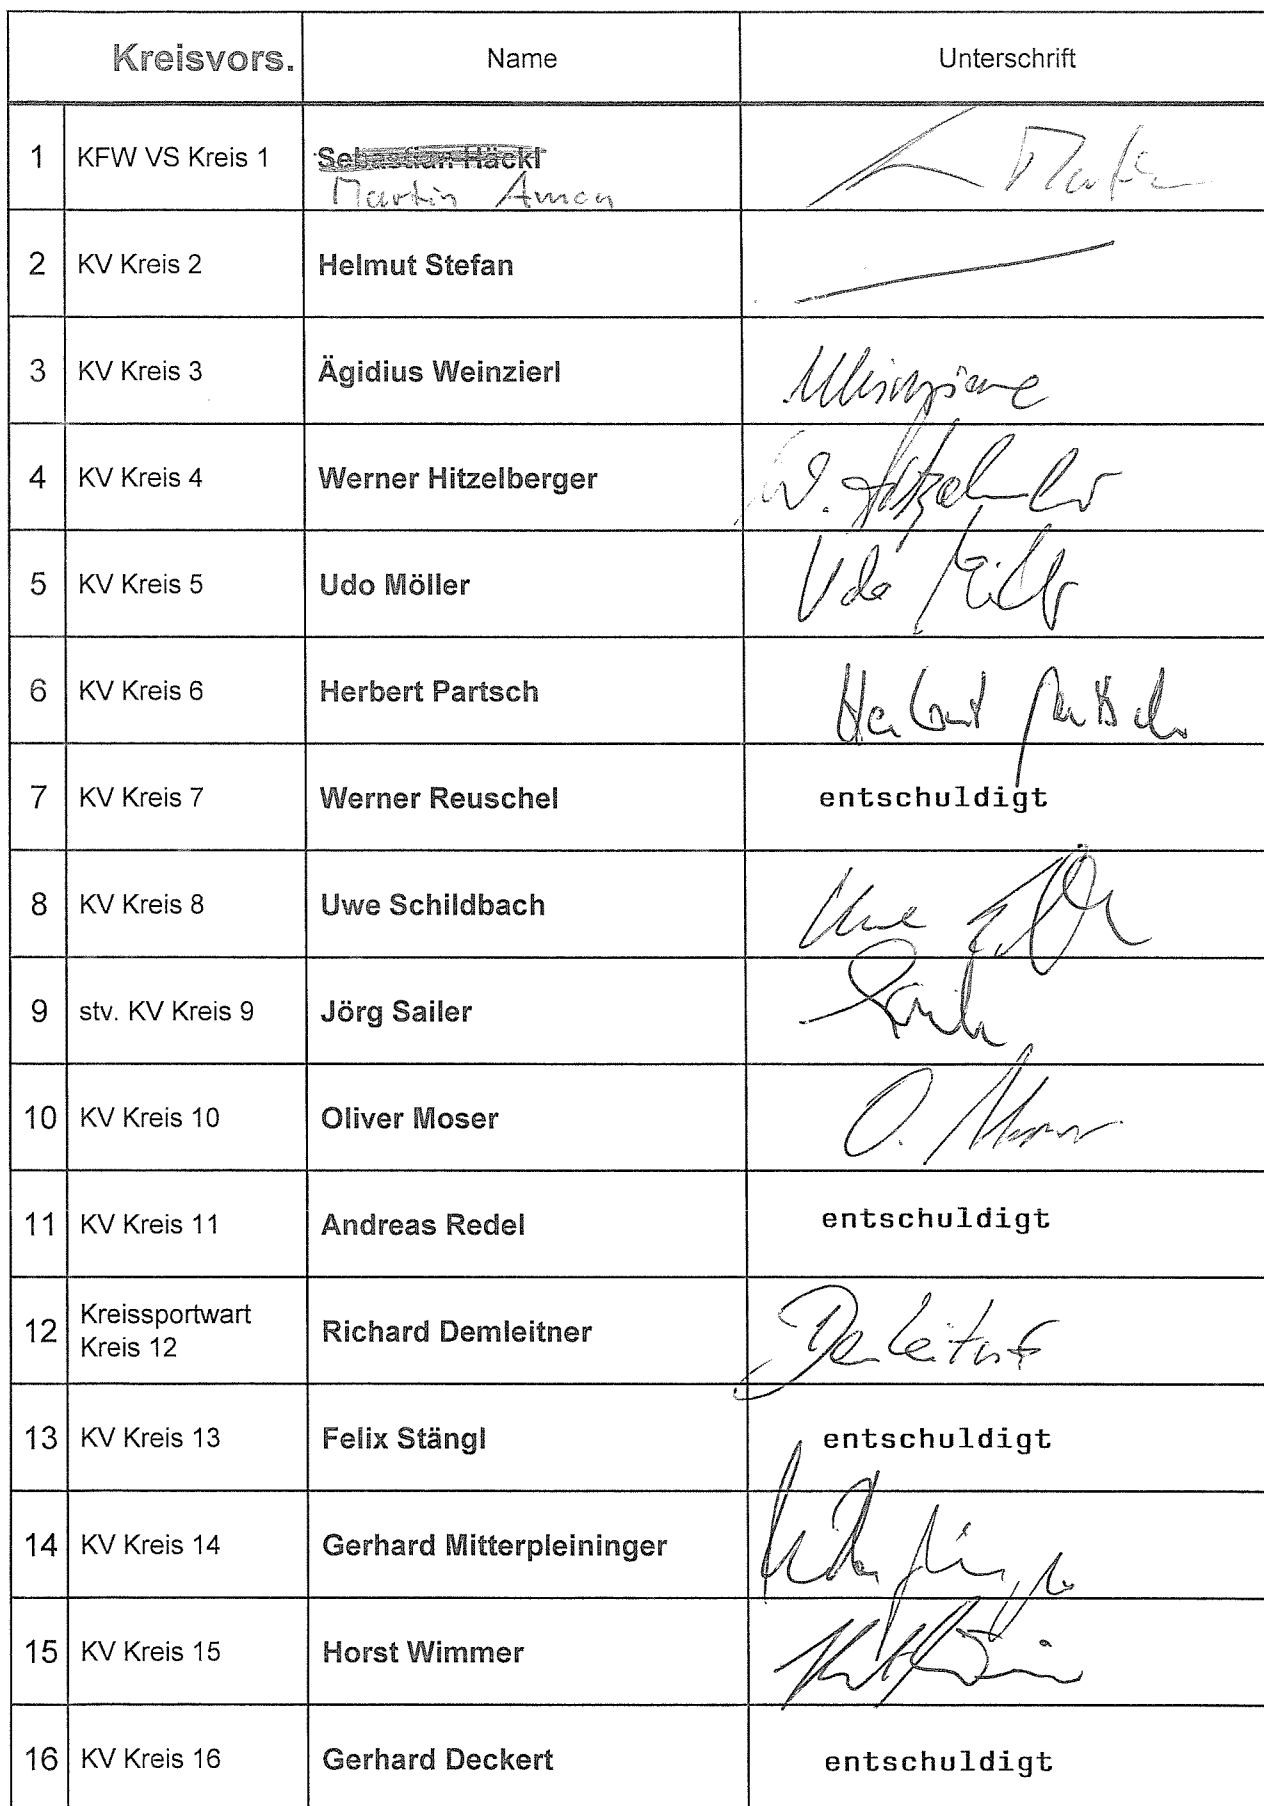 Kreisvors. Name Unterschrift
1 KFW VS Kreis 1 Sebastian Häckl
Martin
2 KV Kreis 2 Helmut Stefan
3 KV Kreis 3 Ägidius Weinzierl
4 KV Kreis 4 Werner Hitzelberger W. Hitzelberger
5 KV Kreis 5 Udo Möller Udo Möller
6 KV Kreis 6 Herbert Partsch Herbert Partsch
7 KV Kreis 7 Werner Reuschel entschuldigt
8 KV Kreis 8 Uwe Schildbach Uwe
9 stv. KV Kreis 9 Jörg Sailer Sailer
10 KV Kreis 10 Oliver Moser O. Moser
11 KV Kreis 11 Andreas Redel entschuldigt
12 Kreissportwart
Kreis 12 Richard Demleitner Demleitner
13 KV Kreis 13 Felix Stängl entschuldigt
14 KV Kreis 14 Gerhard Mitterpleininger
15 KV Kreis 15 Horst Wimmer
16 KV Kreis 16 Gerhard Deckert entschuldigt